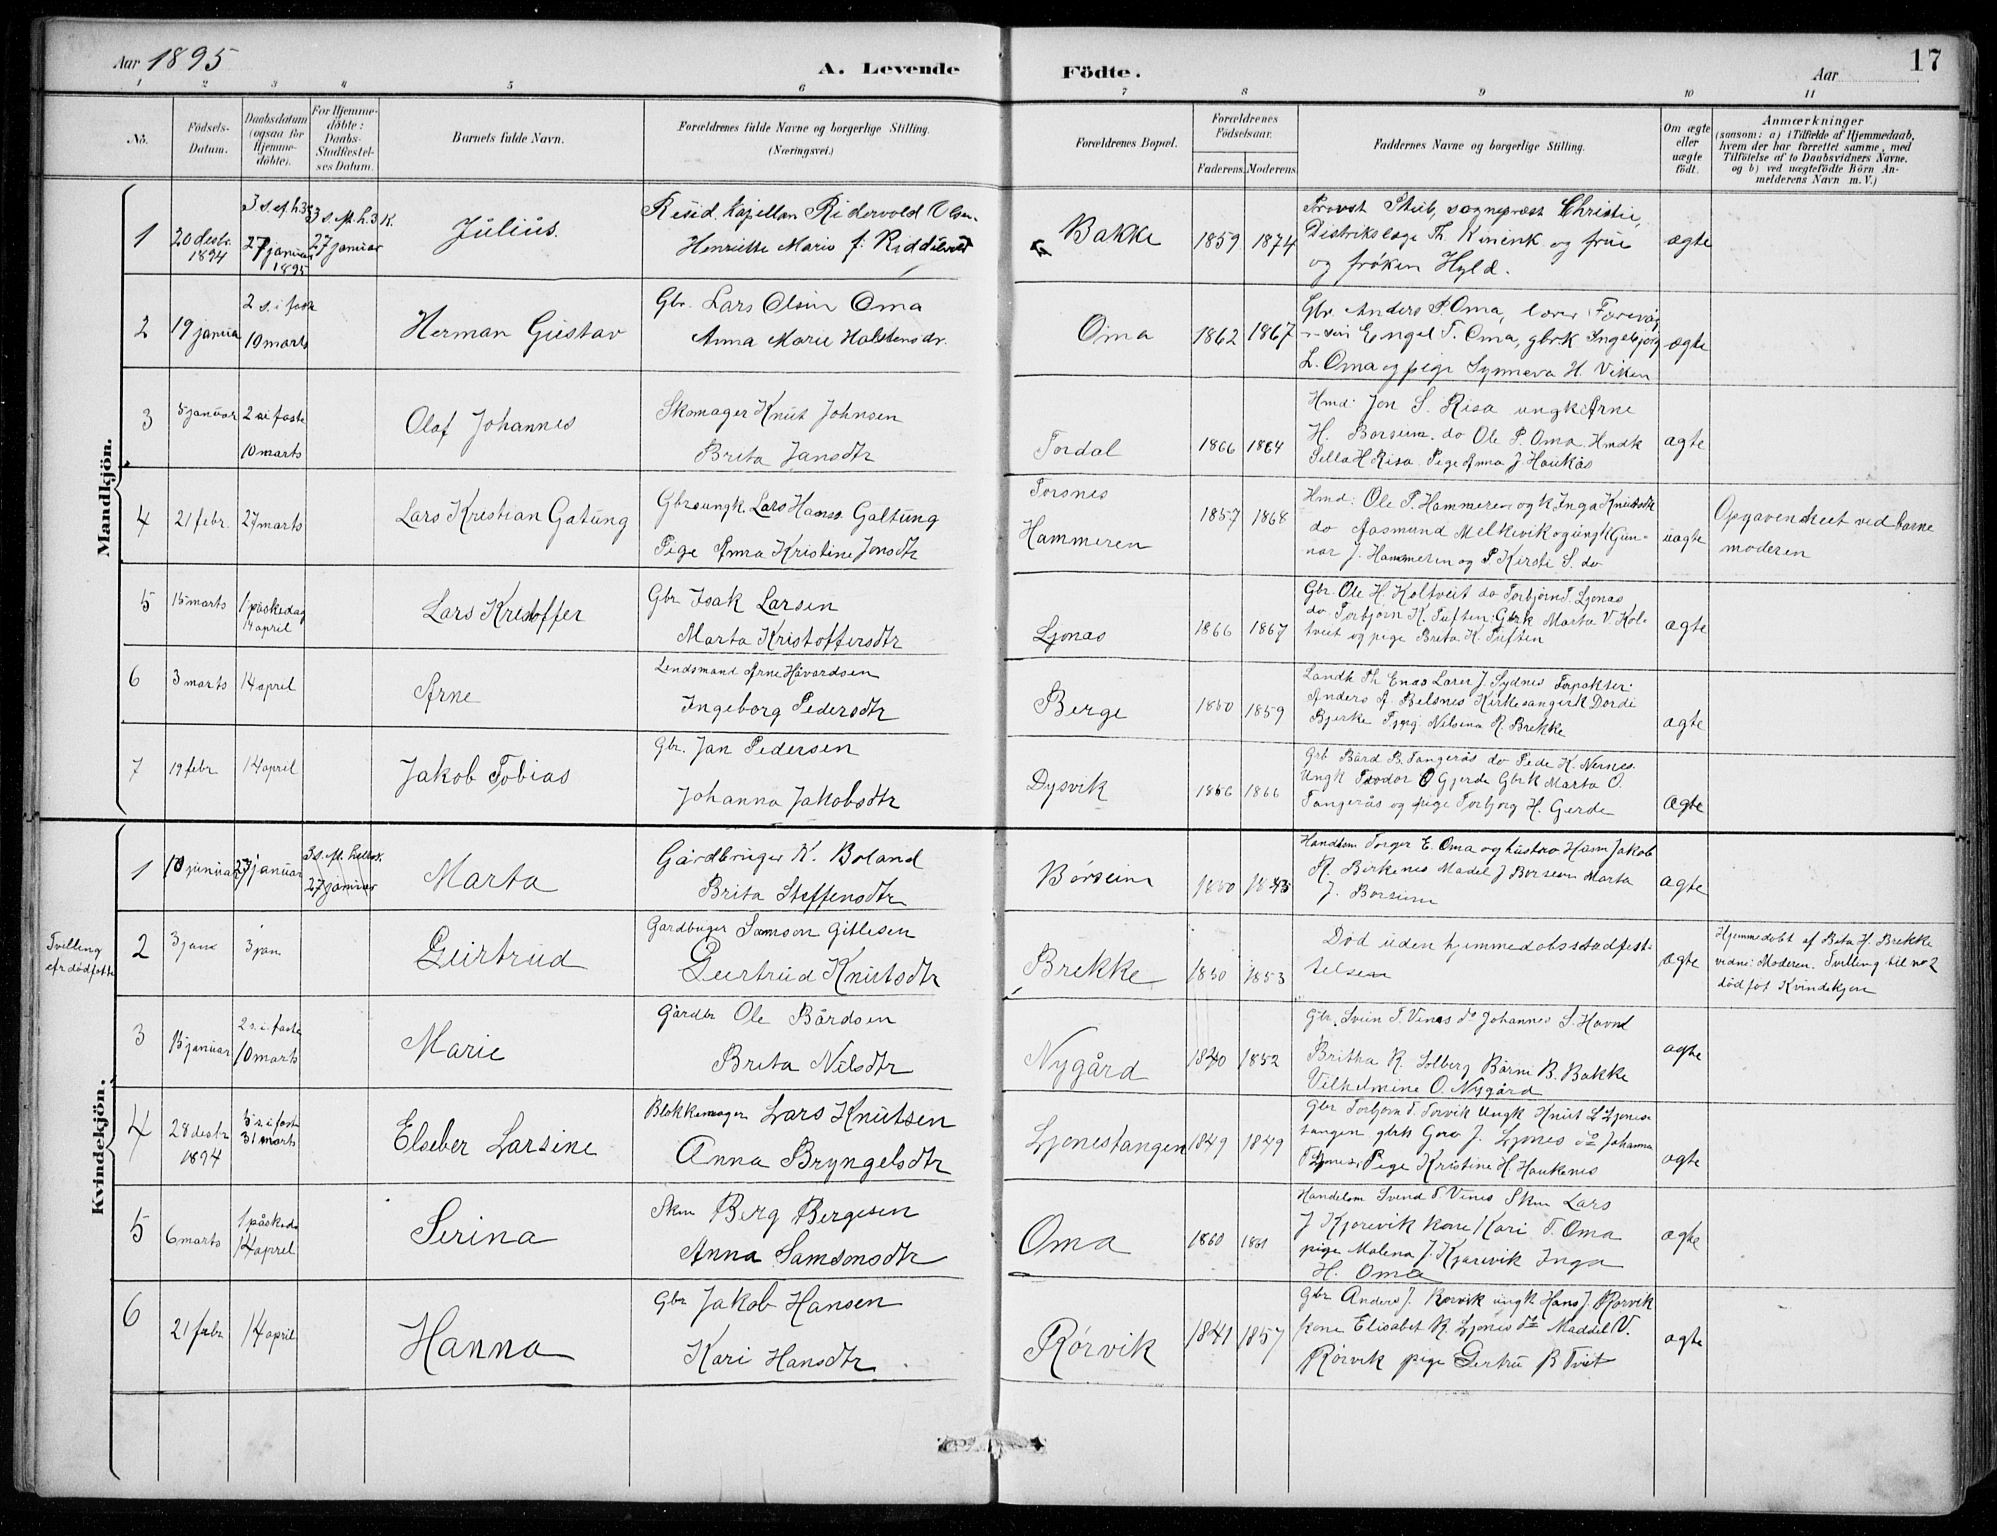 Aar 1895
A. Levende Födte.
Aar
17
1 2 3 4 5 6 7 8 9 10 11
No.
Födsels-Datum.
Daabsdatum (ogsaa for Hjemme-döbte).
For Hjemme-döbte: Daabs-Stadfæstel-ses Datum.
Barnets fulde Navn.
Forældrenes fulde Navne og borgerlige Stilling. (Næringsvei.)
Forældrenes Bopæl.
Forældrenes Födselsaar.
Faderens. Moderens.
Faddernes Navne og borgerlige Stilling.
Om ægte eller uægte födt.
Anmærkninger
(saasom: a) i Tilfælde af Hjemmedaab,
hvem der har forrettet samme, med
Tilföielse af to Daabsvidners Navne.
og b) ved uægtefödte Börn An-
melderens Navn m. V.)
Mandkjön.
1
20 desbr. 1894
27 januar 1895
27 januar
Julius.
Resid. Kapellan Ridervold Olsen
Henriette Marie f.
Bakke
1859 1874
Provst Stub, sognepræst Christie,
Distrikslæge Th. og frue
og frøken Hyld.
ægte
2
19 januar
2 s. i faste
10 marts
Herman Gustav
Gbr. Lars Olsen Oma
Anna Marie Halstensdr.
Oma
1862 1867
Gbr Anders P. Oma, lærer
Engel T. Oma, gbrk Ingebjorg
L. Oma og pige Synneva H. Viken
ægte
3
5 januar
2 s i faste
10 marts
Olaf Johannes
Skomager Knut Johnsen
Brita Jansdtr
Tordal
1866 1864
Hmd: Jon S. Risa ungk Arne
H. Børseim. do Ole P. Oma. Hmdk
Sella H Risa. Pige Anna J Haukås
ægte
4
21 febr.
27 marts
Lars Kristian Gatung
Gbrsungk. Lars Hanss. Galtung
Pige Anna Kristine Jonsdtr
Torsnes
Hammeren
1857 1868
Hmd: Ole P. Hammeren og k. Inga Knutsdtr
do Aasmund Melkevik og ungk Gun-
nar J. Hammeren og P Kirsti S. do
uægte
Opgaven skeet ved barne
moderen
5
15 marts
1 påskedag
14 april
Lars Kristoffer
Gbr Isak Larsen
Marta Kristoffersdtr
Ljonas
1866 1867
Gbr. Ole H. Koltveit do Torbjørn T. Ljonas
do. Torbjørn K. Tuften. Gbrk Marta V. Kol-
tveit og pige Brita K. Tuften
ægte
6
3 marts
14 april
Arne
Lendsmand Arne Håvardsen
Ingeborg Pedersdtr
Berge
1850 1859
Landh Th Enas Lærer J Sydnes Forpakter
Anders A. Belsnes Kirkesangerk Dordi
Bjerke Nilsina R. Brekke
ægte
7
19 febr
14 april
Jakob Tobias
Gbr. Jan Pedersen
Johanna Jakobsdtr
Dysvik
1866 1866
Grb Bård B. Tangerås do Pede K. Nernes
Ungk Teodor O Gjerde Gbrk Marta O.
Tangerås og pige Torbjorg H. Gerde
ægte
Kvindekjön.
1
10 januar
27 januar
27 januar
Marta
Gårdbruger K. Boland
Brita Steffensdtr
Børseim
1850
Handlsm Torger E. Oma og hustro Husm Jakob
R. Birkenes Madel J Børseim Marta
J. Børseim
ægte
Tvilling
efr dødføtte
2
3 jan
3 jan
Geirtrud
Gardbuger Samson Gitlesen
Geirtrud Knutsdtr
Brekke
1850 1853
Død uden hjemmedobsstadfest-
telsen
ægte
Hjemmedobt af Brita H. Brekke
vidne: Moderen. Tvilling til no 2
dødføt Kvindekjøn
3
15 januar
2 s. i faste
10 marts
Marie
Gårdbr Ole Bårdsen
Brita Nilsdtr
Nygård
1840 1852
Gbr. Svein T. Vines do Johannes S. Havnl
Britha R. Solberg Børni B. Bakke
Vilhelmine O. Nygård
ægte
4
28 desbr 1894
5 s i fast
31 marts
Elseber Larsine
Blokkemager Lars Knutsen
Anna Bryngelsdtr
Ljonestangen
1849 1849
Gbr Torbjorn T. Torvik Ungk Knut L Ljones-
tangen gbrk Goro J. Ljones do Johanna
T Ljones, Pige Kristine H. Haukenes
ægte
5
6 marts
1 påskeda
14 april
Serina
Skm Berg Bergesen
Anna Samsonsdtr
Oma
1860 1861
Handelsm Svend T Vines Skm Lars
J Kjorevik kone Kari T. Oma
pige Malena J. Kjærevik Inga
H. Oma
ægte
6
21 febr
14 april
Hanna
Gbr Jakob Hansen
Kari Hansdtr.
Rörvik
1841 1857
Gbr Anders J. Rorvik ungk Hans J. Rorvik
kone Elisabet R. Ljones do Maddel V.
Rörvik pige Gertru B Tvet
ægte